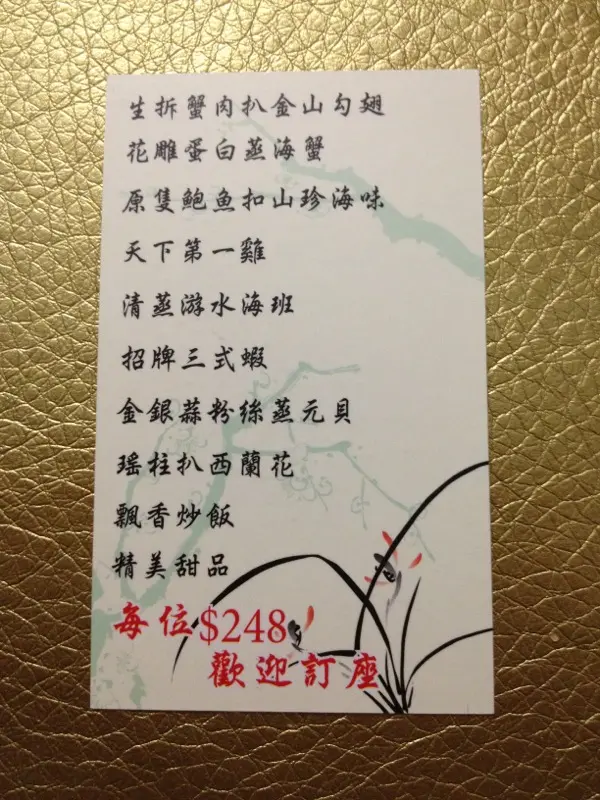 生拆蟹肉扒金山勾翅
花雕蛋白蒸海蟹
原隻鮑魚扣山珍海味
天下第一雞
清蒸游水海班
招牌三式蝦
金銀蒜粉絲蒸元貝
瑤柱扒西蘭花
飄香炒飯
精美甜品
每位$248
歡迎訂座